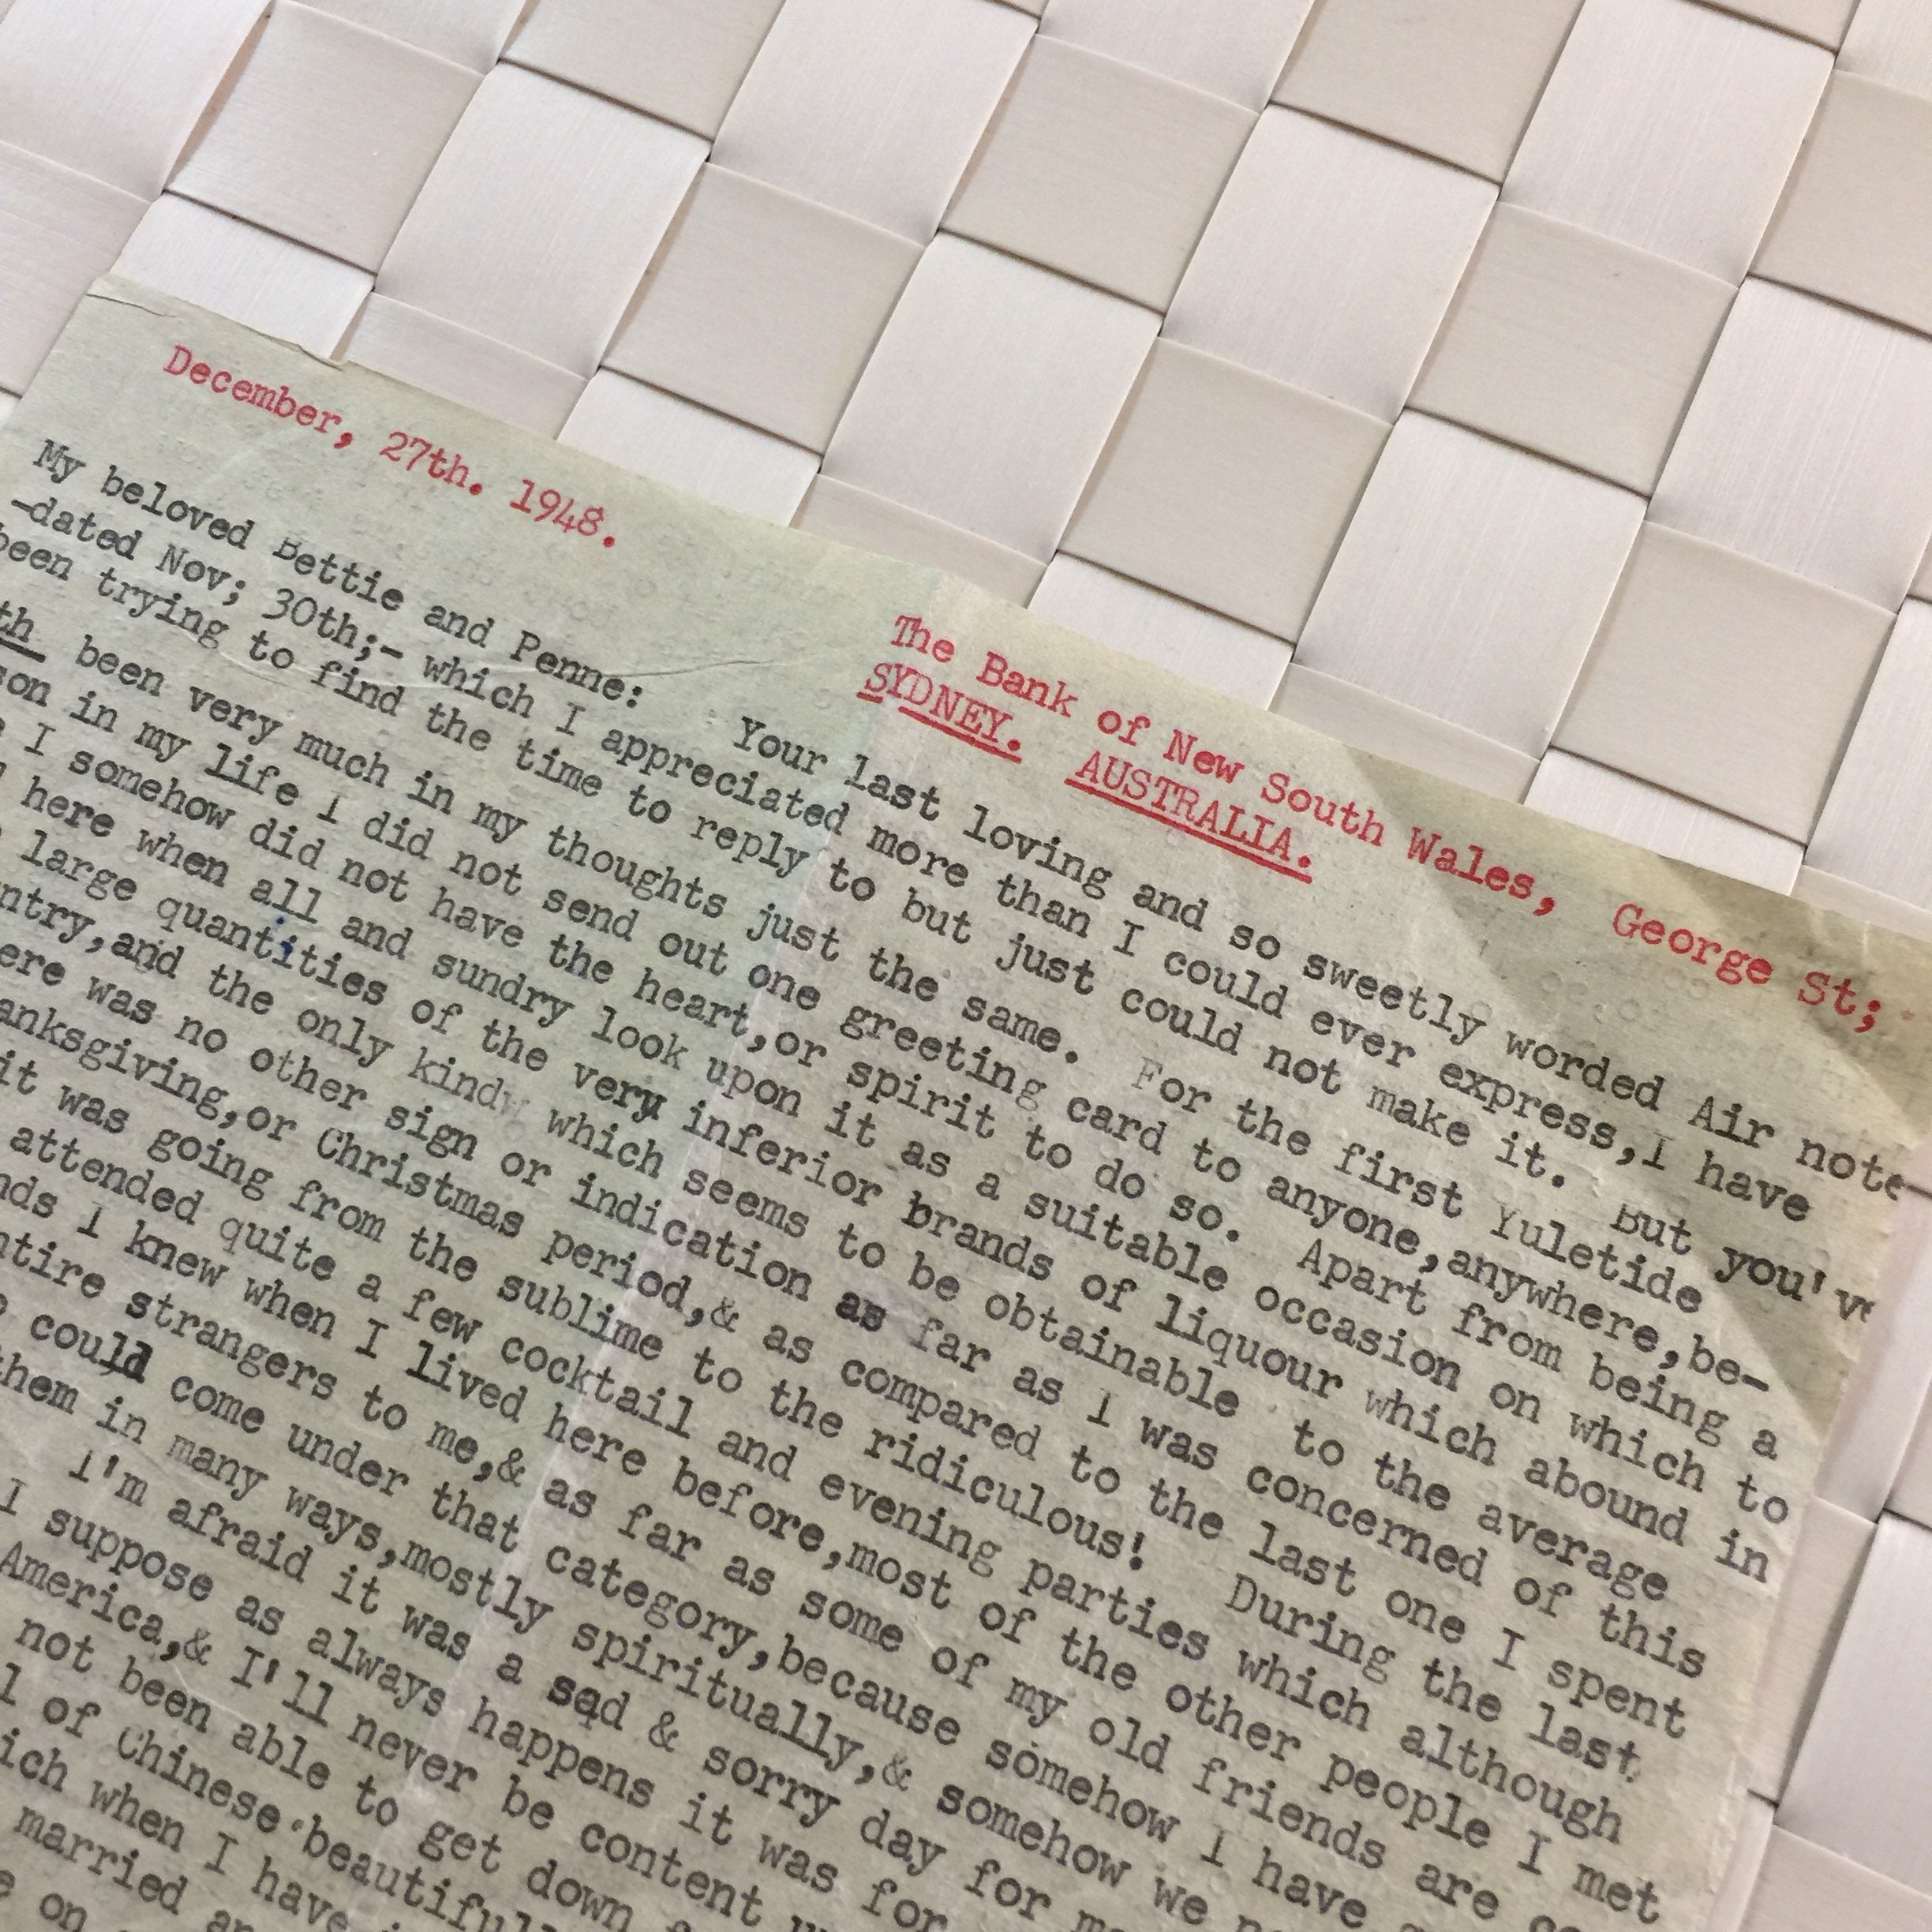 December, 27th. 1948.
The Bank of New South Wales, George St;
SYDNEY. AUSTRALIA.
My beloved Bettie and Penne: Your last loving and so sweetly worded Air note
-dated Nov; 30th;- which I appreciated more than I could ever express,I have
been trying to find the time to reply to but just could not make it. But you've
th been very much in my thoughts just the same. For the first Yuletide
son in my life I did not send out one greeting card to anyone,anywhere,be-
I somehow did not have the heart,or spirit to do so. Apart from being a
here when all and sundry look upon it as a suitable occasion on which to
large quantities of the very inferior brands of liquour which abound in
ntry,and the only kind which seems to be obtainable to the average
ere was no other sign or indication as far as I was concerned of this
anksgiving,or Christmas period,& as compared to the last one I spent
it was going from the sublime to the ridiculous! During the last
attended quite a few cocktail and evening parties which although
nds I knew when I lived here before,most of the other people I met
ntire strangers to me,& as far as some of my old friends are co
could come under that category,because somehow I have
them in many ways,mostly spiritually,& somehow we
I'm afraid it was a sad & sorry day for
I suppose as always happens it was for
America,& I'll never be content
not been able to get down
l of Chinese beautiful
ich when I have
married
on